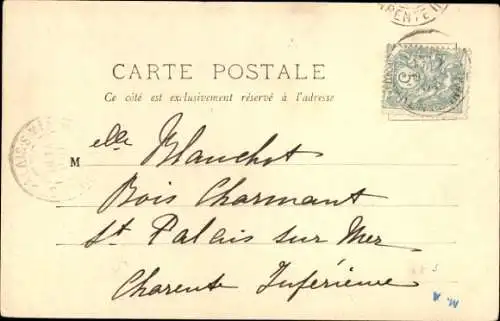 CARTE POSTALE
Ce côté est exclusivement réservé à l'adresse
M elle Blanchot
Bois Charmant
St Palais sur Mer
Charente Inférieure
M. A